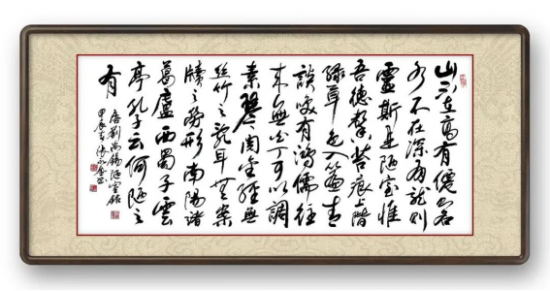 山不在高有僊則名
水不在深有龍則
靈斯是陋室惟
吾德馨苔痕上階
綠草色入簾青
談笑有鴻儒往
來無白丁可以調
素琴閱金經無
絲竹之亂耳無案
牘之勞形南陽諸
葛廬西蜀子雲
亭孔子云何陋之
有
唐劉禹錫陋室銘
甲辰